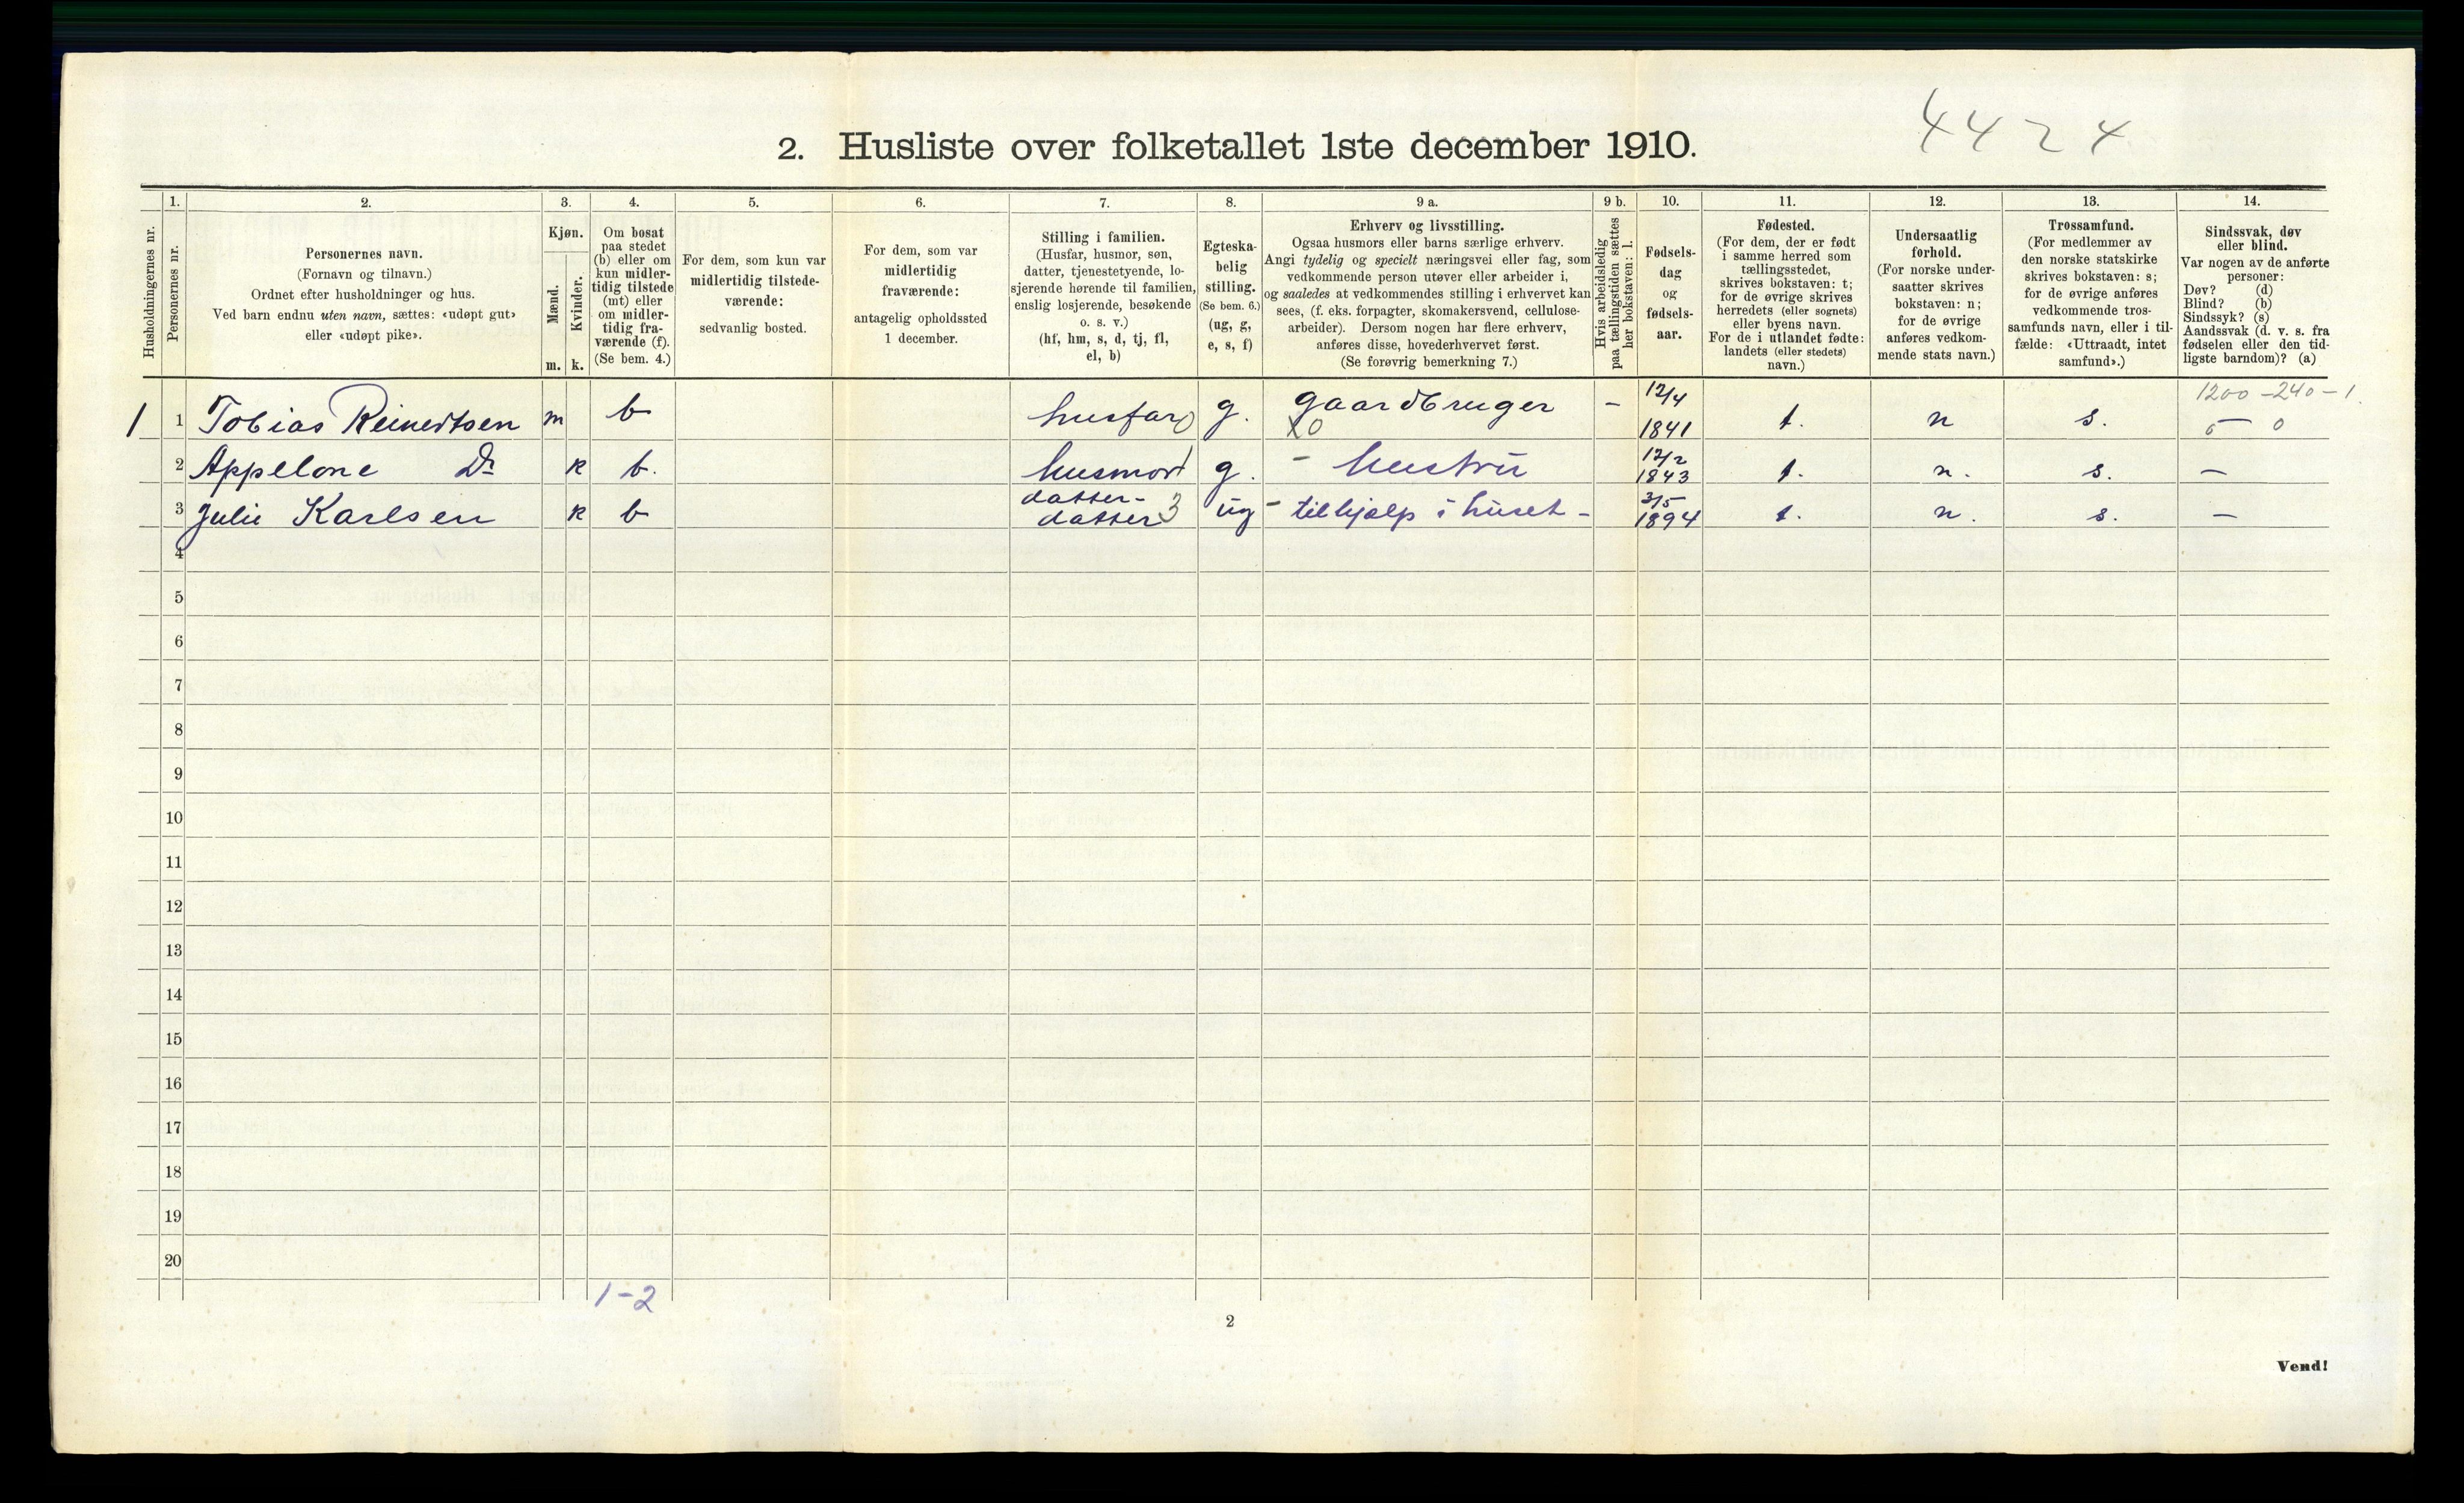 4424
2. Husliste over folketallet 1ste december 1910.
Husholdningernes nr.
1.
Personernes nr.
2.
Personernes navn.
(Fornavn og tilnavn.)
Ordnet efter husholdninger og hus.
Ved barn endnu uten navn, sættes: «udøpt gut»
eller «udøpt pike».
3.
Kjøn.
Mænd.
Kvinder.
m. k.
4.
Om bosat
paa stedet
(b) eller om
kun midler-
tidig tilstede
(mt) eller
om midler-
tidig fra-
værende (f).
(Se bem. 4.)
5.
For dem, som kun var
midlertidig tilstede-
værende:
sedvanlig bosted.
6.
For dem, som var
midlertidig
fraværende:
antagelig opholdssted
1 december.
7.
Stilling i familien.
(Husfar, husmor, søn,
datter, tjenestetyende, lo-
sjerende hørende til familien,
enslig losjerende, besøkende
o. s. v.)
(hf, hm, s, d, tj, fl,
el, b)
8.
Egteska-
belig
stilling.
(Se bem. 6.)
(ug, g,
e, s, f)
9 a.
Erhverv og livsstilling.
Ogsaa husmors eller barns særlige erhverv.
Angi tydelig og specielt næringsvei eller fag, som
vedkommende person utøver eller arbeider i,
og saaledes at vedkommendes stilling i erhvervet kan
sees, (f. eks. forpagter, skomakersvend, cellulose-
arbeider). Dersom nogen har flere erhverv,
anføres disse, hovederhvervet først.
(Se forøvrig bemerkning 7.)
9 b.
Hvis arbeidsledig
paa tællingstiden sættes
her bokstaven: l.
10.
Fødsels-
dag
og
fødsels-
aar.
11.
Fødested.
(For dem, der er født
i samme herred som
tællingsstedet,
skrives bokstaven: t;
for de øvrige skrives
herredets (eller sognets)
eller byens navn.
For de i utlandet fødte:
landets (eller stedets)
navn.)
12.
Undersaatlig
forhold.
(For norske under-
saatter skrives
bokstaven: n;
for de øvrige
anføres vedkom-
mende stats navn.)
13.
Trossamfund.
(For medlemmer av
den norske statskirke
skrives bokstaven: s;
for de øvrige anføres
vedkommende tros-
samfunds navn, eller i til-
fælde: «Uttraadt, intet
samfund».)
14.
Sindssvak, døv
eller blind.
Var nogen av de anførte
personer:
Døv? (d)
Blind? (b)
Sindssyk? (s)
Aandssvak (d. v. s. fra
fødselen eller den tid-
ligste barndom)? (a)
1200-240-1.
1 1 Tobias Reinertsen m b husfar g. gaardbruger - 12/4 1841 t. n s. 0
X0
2 Appelone Do k b. husmor g. - hustru 12/2 1843 t. n. s. -
3 Julie Karlsen k b datter-datter 3 ug - tilhjælp i huset - 3/5 1894 t. n. s. -
4
5
6
7
8
9
10
11
12
13
14
15
16
17
18
19
20
1-2
2
Vend!